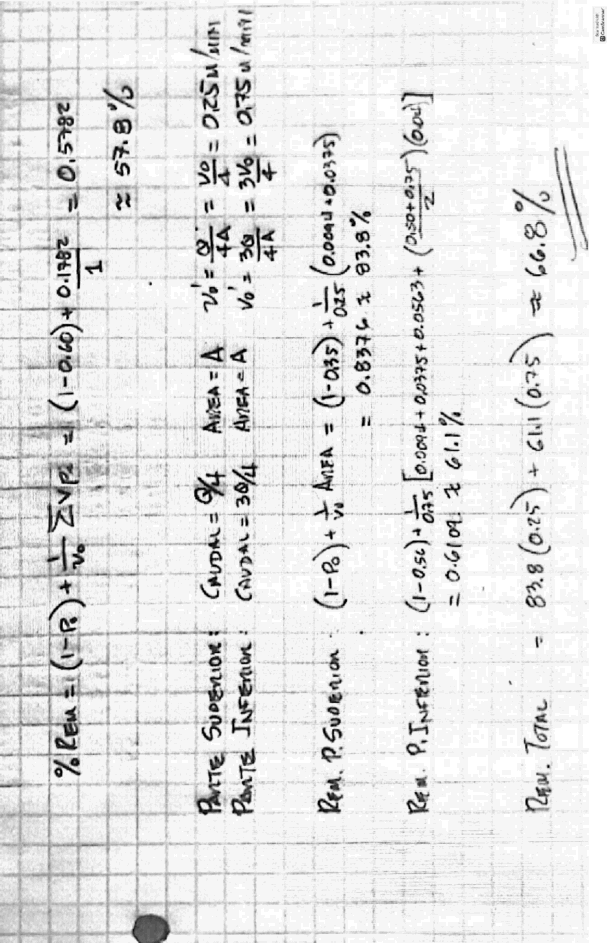 % REM = (1-P₀) + 1/V₀ ∑VP₂ = (1-0.60) + 0.1782/1 = 0.5782
≈ 57.8%
PARTE SUPERIOR: CAUDAL = Q/4 AREA = A V₀' = Q/4A = V₀/4 = 0.25 M/MIN
PARTE INFERIOR: CAUDAL = 3Q/4 AREA = A V₀' = 3Q/4A = 3V₀/4 = 0.75 M/MIN
REM. P. SUPERIOR: (1-P₀) + 1/V₀ AREA = (1-0.35) + 1/0.25 (0.0094+0.0375)
= 0.8376 ≈ 83.8%
REM. P. INFERIOR: (1-0.56) + 1/0.75 [0.0094+0.0375+0.0563+ (0.50+0.75)/2 (0.04)]
= 0.6109 ≈ 61.1%
REM. TOTAL = 83.8 (0.25) + 61.1 (0.75) ≈ 66.8%